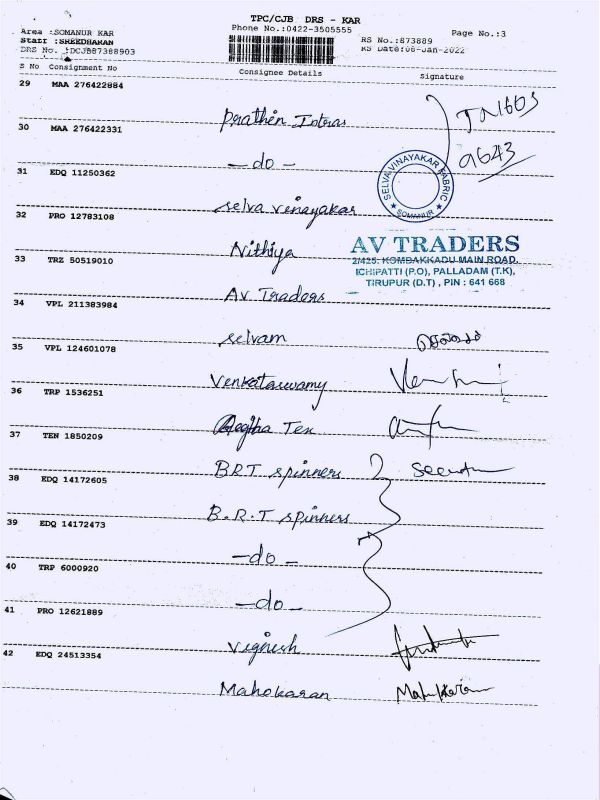 TPC/CJB DRS - KAR
Area :SOMANUR KAR
Phone No.:0422-3505555
Page No.:3
Staff :SREEDHARAN
RS No.:873889
DRS No. :DCJB87388903
RS Date:08-Jan-2022
S No Consignment No Consignee Details Signature
29 MAA 276422884
Prathen Intras
TN1660S
30 MAA 276422331
- do -
9643
31 EDQ 11250362
SELVA VINAYAKAR FABRIC
★ SOMANUR ★
selva vinayakar
32 PRO 12783108
Nithiya
AV TRADERS
2/425, KOMBAKKADU MAIN ROAD,
ICHIPATTI (P.O), PALLADAM (T.K),
TIRUPUR (D.T) , PIN : 641 668
33 TRZ 50519010
AV Traders
34 VPL 211383984
selvam
35 VPL 124601078
Venkataswamy
36 TRP 1536251
Tex
37 TEN 1850209
BRT spinners
38 EDQ 14172605
B.R.T spinners
39 EDQ 14172473
- do -
40 TRP 6000920
- do -
41 PRO 12621889
Vignesh
42 EDQ 24513354
Mahokaran